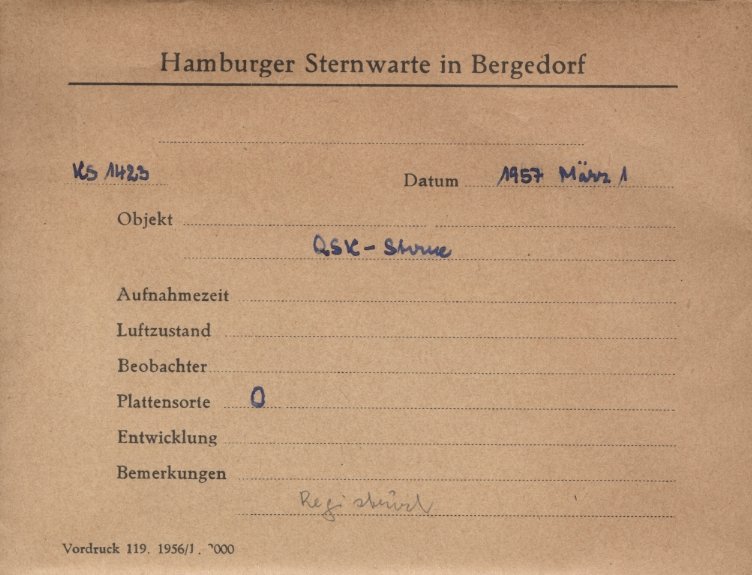 Hamburger Sternwarte in Bergedorf
KS 1423 Datum 1957 März 1
Objekt
QSK - Sterne
Aufnahmezeit
Luftzustand
Beobachter
Plattensorte O
Entwicklung
Bemerkungen
Vordruck 119. 1956/1.